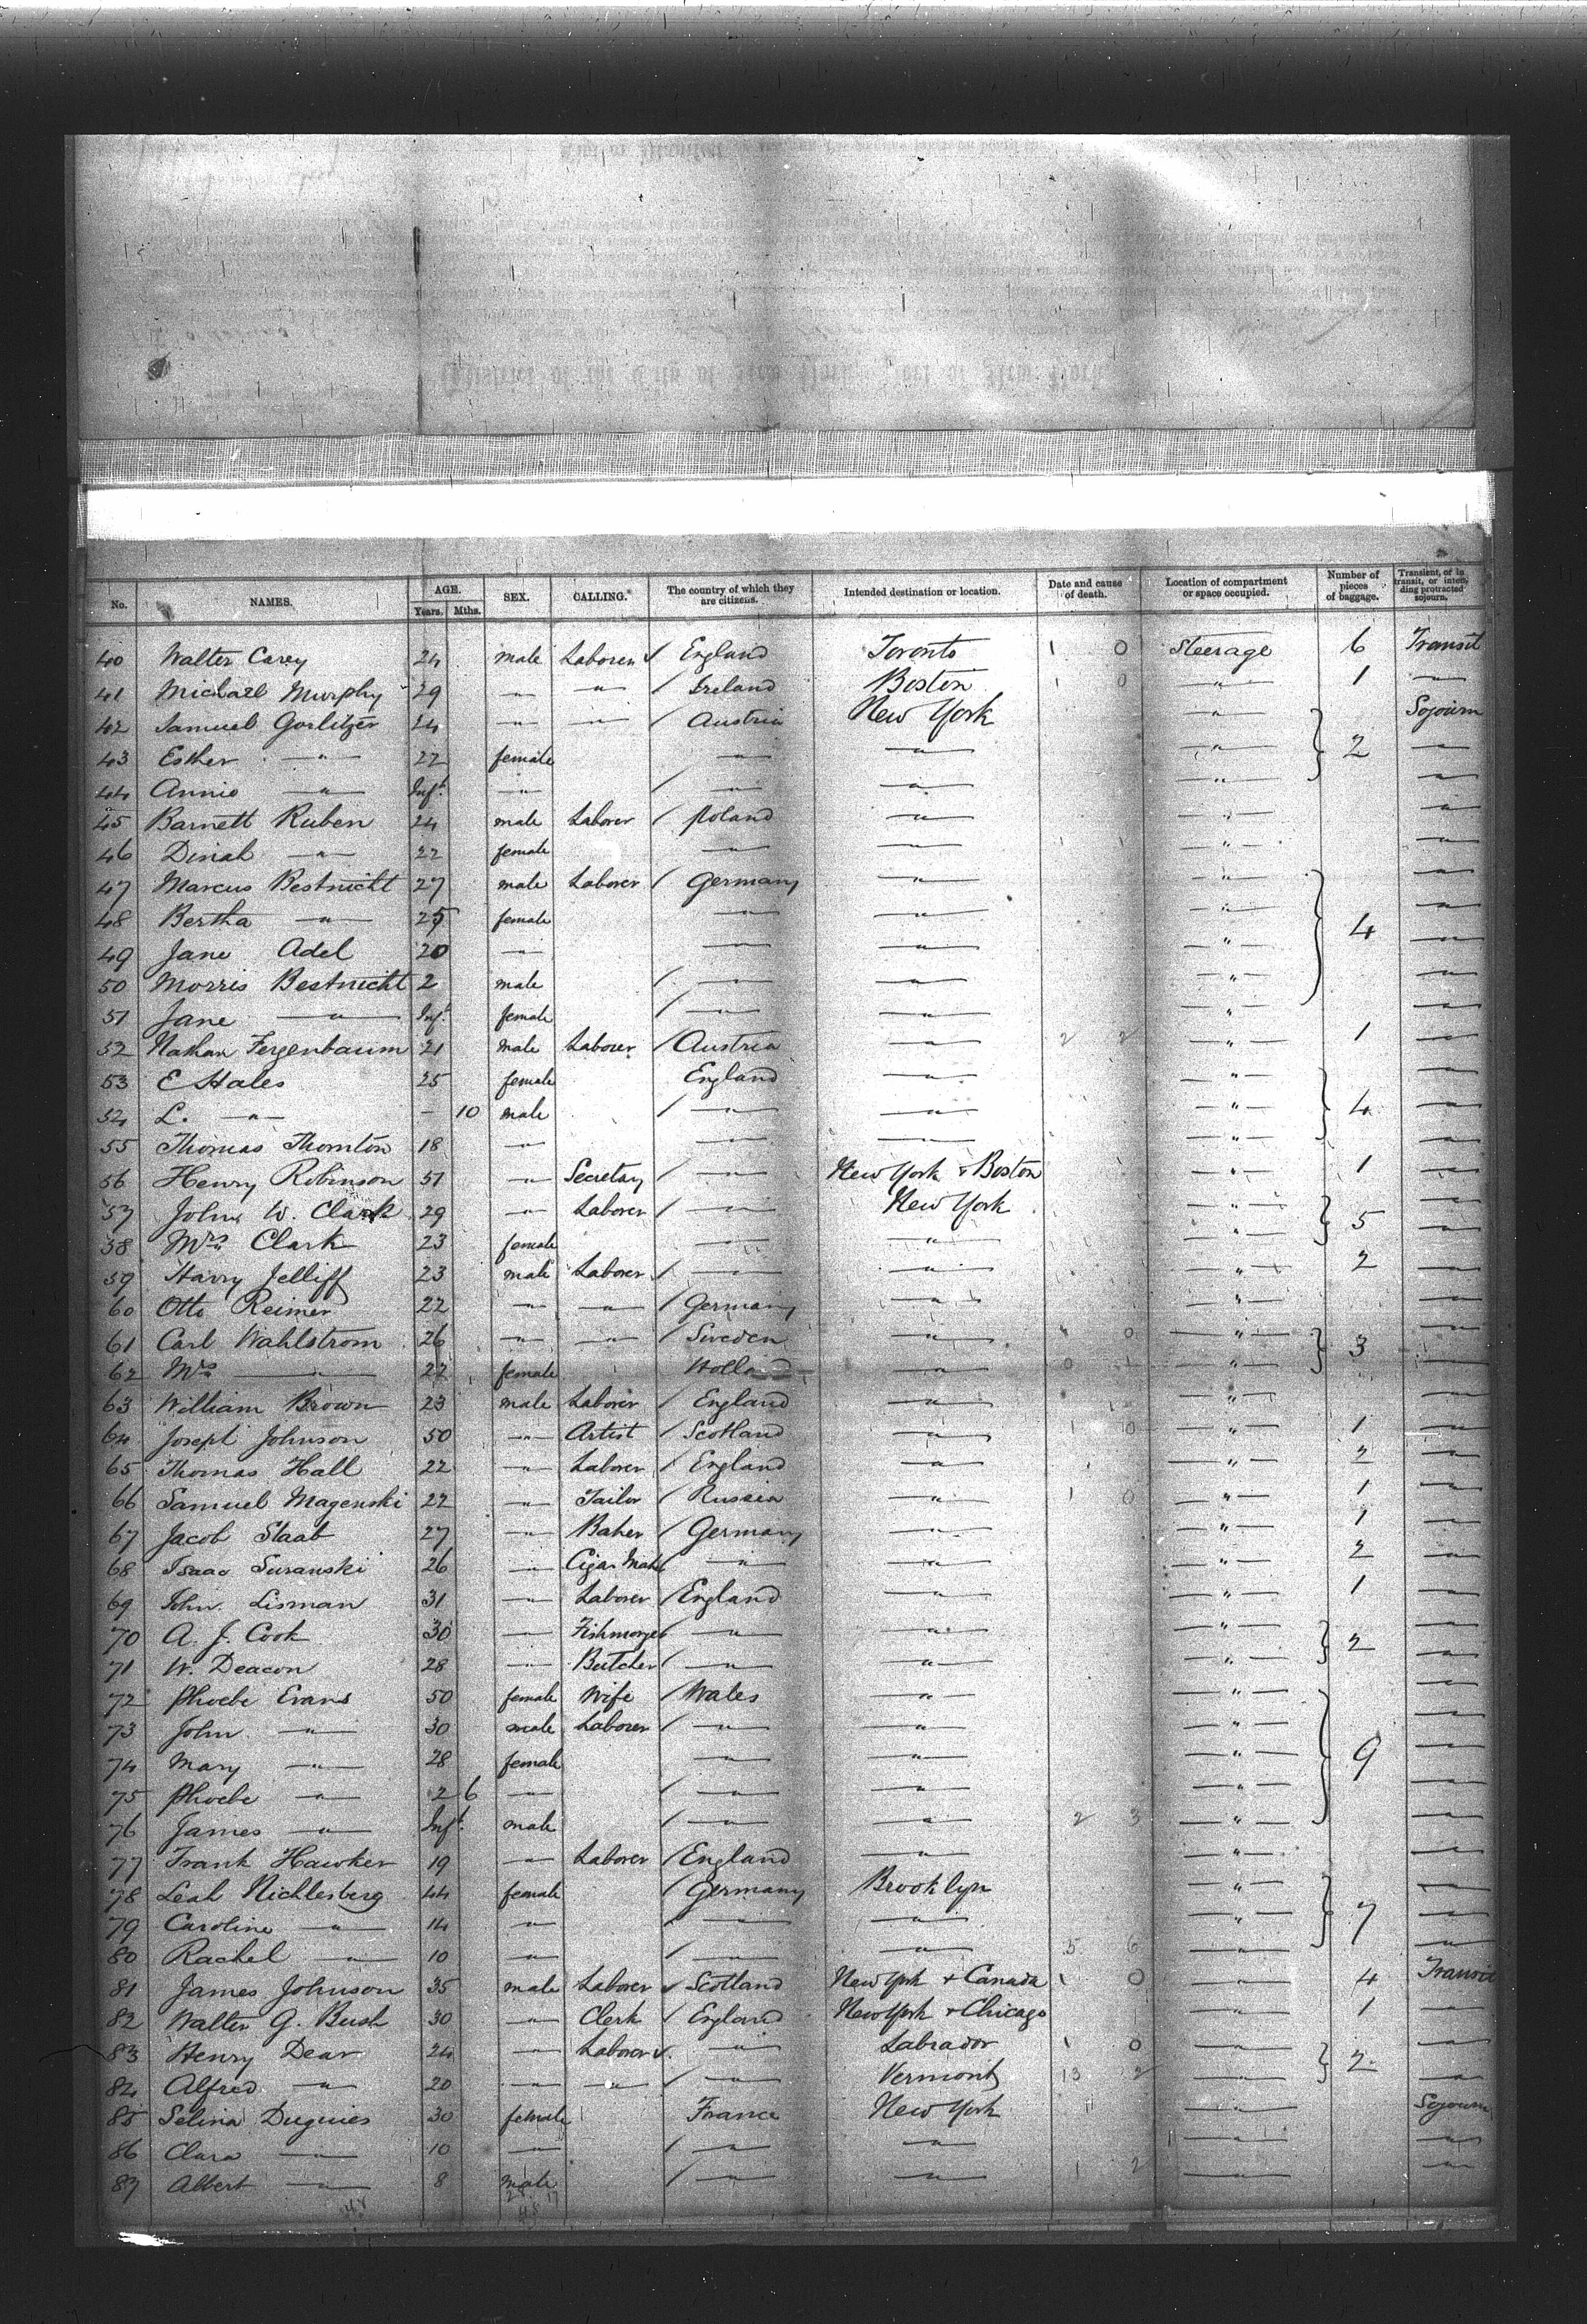 No. NAMES. AGE. Years. Mths. SEX. CALLING. The country of which they are citizens. Intended destination or location. Date and cause of death. Location of compartment or space occupied. Number of pieces of baggage. Transient, or in transit, or intending protracted sojourn.
40 Walter Carey 24 male Laborer England Toronto 1 0 Steerage 6 Transit
41 Michael Murphy 29 " " Ireland Boston 1 0 " 1 "
42 Samuel Gorlitzer 24 " " Austria New York " Sojourn
43 Esther " 22 female " " " 2 "
44 Annie " Inft " " " " "
45 Barnett Ruben 24 male Laborer Poland " " "
46 Dinah " 22 female " " " "
47 Marcus Bestnicht 27 male Laborer Germany " " "
48 Bertha " 25 female " " " 4 "
49 Jane Adel 20 " " " " "
50 Morris Bestnicht 2 male " " " "
51 Jane " Inft female " " " "
52 Nathan Fergenbaum 21 male Laborer Austria " 2 2 " 1 "
53 E Hales 25 female England " " "
54 L. " - 10 male " " " 4 "
55 Thomas Thornton 18 " " " " "
56 Henry Robinson 51 " Secretay " New York & Boston " 1 "
57 John W. Clark 29 " Laborer " New York " 5 "
58 Mrs Clark 23 female " " " "
59 Harry Jelliff 23 male Laborer " " " 2 "
60 Otto Reimer 22 " " Germany " " "
61 Carl Wahlstrom 26 " " Sweden " 0 " 3 "
62 Mrs " 22 female Holland " 0 " "
63 William Brown 23 male Laborer England " " "
64 Joseph Johnson 50 " Artist Scotland " 1 0 " 1 "
65 Thomas Hall 22 " Laborer England " " 2 "
66 Samuel Magenski 22 " Tailor Russia " 1 0 " 1 "
67 Jacob Staab 27 " Baker Germany " " 1 "
68 Isaac Suranski 26 " Cigar Mak " " " 2 "
69 John Lisman 31 " Laborer England " " 1 "
70 A. J. Cook 30 " Fishmonger " " " 2 "
71 W. Deacon 28 " Butcher " " " "
72 Phoebe Evans 50 female Wife Wales " " "
73 John " 30 male Laborer " " " "
74 Mary " 28 female " " " 9 "
75 Phoebe " 2 6 " " " " "
76 James " Inft male " " 2 3 " "
77 Frank Hawker 19 " Laborer England " " "
78 Leah Nichlesberg 44 female Germany Brooklyn " "
79 Caroline " 14 " " " " 7 "
80 Rachel " 10 " " " 5 6 " "
81 James Johnson 35 male Laborer Scotland New York & Canada 1 0 " 4 Transit
82 Walter G. Bush 30 " Clerk England New York & Chicago " 1 "
83 Henry Dear 24 " Laborer " Labrador 1 0 " 2 "
84 Alfred " 20 " " " Vermont 13 2 " "
85 Selina Duguies 30 female France New York " Sojourn
86 Clara " 10 " " " " "
87 Albert " 8 male " " 1 2 " "